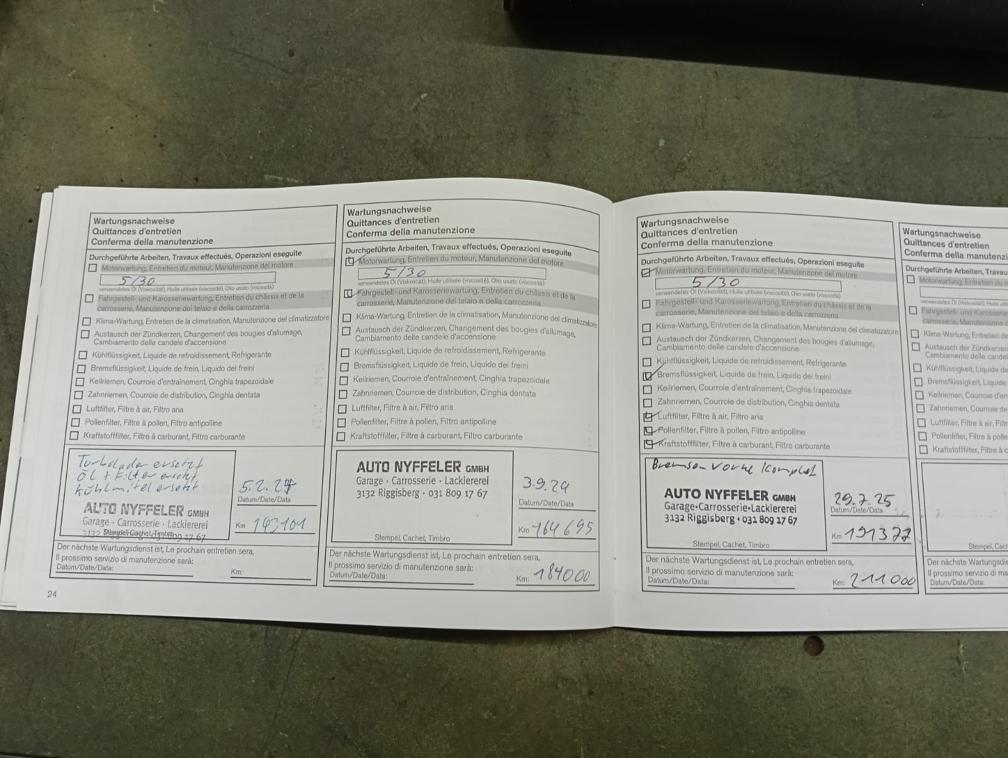 Wartungsnachweise
Quittances d'entretien
Conferma della manutenzione
Durchgeführte Arbeiten, Travaux effectués, Operazioni eseguite
Motorwartung, Entretien du moteur, Manutenzione del motore
5/30
verwendetes Öl (Viskosität), Huile utilisée (viscosité), Olio usato (viscosità)
Fahrgestell- und Karosseriewartung, Entretien du châssis et de la
carrosserie, Manutenzione del telaio e della carrozzeria
Klima-Wartung, Entretien de la climatisation, Manutenzione del climatizzatore
Austausch der Zündkerzen, Changement des bougies d'allumage,
Cambiamento delle candele d'accensione
Kühlflüssigkeit, Liquide de refroidissement, Refrigerante
Bremsflüssigkeit, Liquide de frein, Liquido dei freini
Keilriemen, Courroie d'entraînement, Cinghia trapezoidale
Zahnriemen, Courroie de distribution, Cinghia dentata
Luftfilter, Filtre à air, Filtro aria
Pollenfilter, Filtre à pollen, Filtro antipolline
Kraftstofffilter, Filtre à carburant, Filtro carburante
Turbolader ersetzt
Öl + Filter ersetzt
Kühlmittel ersetzt
AUTO NYFFELER GMBH
Garage · Carrosserie · Lackiererei
3132 17 67
Stempel, Cachet, Timbro
5.2.24
Datum/Date/Data
Km 143101
Der nächste Wartungsdienst ist, Le prochain entretien sera,
Il prossimo servizio di manutenzione sarà:
Datum/Date/Data: Km:
24
Wartungsnachweise
Quittances d'entretien
Conferma della manutenzione
Durchgeführte Arbeiten, Travaux effectués, Operazioni eseguite
Motorwartung, Entretien du moteur, Manutenzione del motore
5/30
verwendetes Öl (Viskosität), Huile utilisée (viscosité), Olio usato (viscosità)
Fahrgestell- und Karosseriewartung, Entretien du châssis et de la
carrosserie, Manutenzione del telaio e della carrozzeria
Klima-Wartung, Entretien de la climatisation, Manutenzione del climatizzatore
Austausch der Zündkerzen, Changement des bougies d'allumage,
Cambiamento delle candele d'accensione
Kühlflüssigkeit, Liquide de refroidissement, Refrigerante
Bremsflüssigkeit, Liquide de frein, Liquido dei freini
Keilriemen, Courroie d'entraînement, Cinghia trapezoidale
Zahnriemen, Courroie de distribution, Cinghia dentata
Luftfilter, Filtre à air, Filtro aria
Pollenfilter, Filtre à pollen, Filtro antipolline
Kraftstofffilter, Filtre à carburant, Filtro carburante
AUTO NYFFELER GMBH
Garage · Carrosserie · Lackiererei
3132 Riggisberg · 031 809 17 67
Stempel, Cachet, Timbro
3.9.24
Datum/Date/Data
Km 164695
Der nächste Wartungsdienst ist, Le prochain entretien sera,
Il prossimo servizio di manutenzione sarà:
Datum/Date/Data: Km: 184000
Wartungsnachweise
Quittances d'entretien
Conferma della manutenzione
Durchgeführte Arbeiten, Travaux effectués, Operazioni eseguite
Motorwartung, Entretien du moteur, Manutenzione del motore
5/30
verwendetes Öl (Viskosität), Huile utilisée (viscosité), Olio usato (viscosità)
Fahrgestell- und Karosseriewartung, Entretien du châssis et de la
carrosserie, Manutenzione del telaio e della carrozzeria
Klima-Wartung, Entretien de la climatisation, Manutenzione del climatizzatore
Austausch der Zündkerzen, Changement des bougies d'allumage,
Cambiamento delle candele d'accensione
Kühlflüssigkeit, Liquide de refroidissement, Refrigerante
Bremsflüssigkeit, Liquide de frein, Liquido dei freini
Keilriemen, Courroie d'entraînement, Cinghia trapezoidale
Zahnriemen, Courroie de distribution, Cinghia dentata
Luftfilter, Filtre à air, Filtro aria
Pollenfilter, Filtre à pollen, Filtro antipolline
Kraftstofffilter, Filtre à carburant, Filtro carburante
Bremsen vorne komplet
AUTO NYFFELER GMBH
Garage·Carrosserie·Lackiererei
3132 Riggisberg · 031 809 17 67
Stempel, Cachet, Timbro
29.7.25
Datum/Date/Data
Km 191377
Der nächste Wartungsdienst ist, Le prochain entretien sera,
Il prossimo servizio di manutenzione sarà:
Datum/Date/Data: Km: 211000
Wartungsnachweise
Quittances d'entretien
Conferma della manutenzi
Durchgeführte Arbeiten, Travaux
Motorwartung, Entretien du
verwendetes Öl (Viskosität), Huile
Fahrgestell- und Karosser
carrosserie, Manutenzione
Klima-Wartung, Entretien de
Austausch der Zündkerzen
Cambiamento delle candele
Kühlflüssigkeit, Liquide de
Bremsflüssigkeit, Liquide
Keilriemen, Courroie d'en
Zahnriemen, Courroie de
Luftfilter, Filtre à air, Filtro
Pollenfilter, Filtre à pollen
Kraftstofffilter, Filtre à car
Stempel, Cach
Der nächste Wartungsdie
Il prossimo servizio di man
Datum/Date/Data: